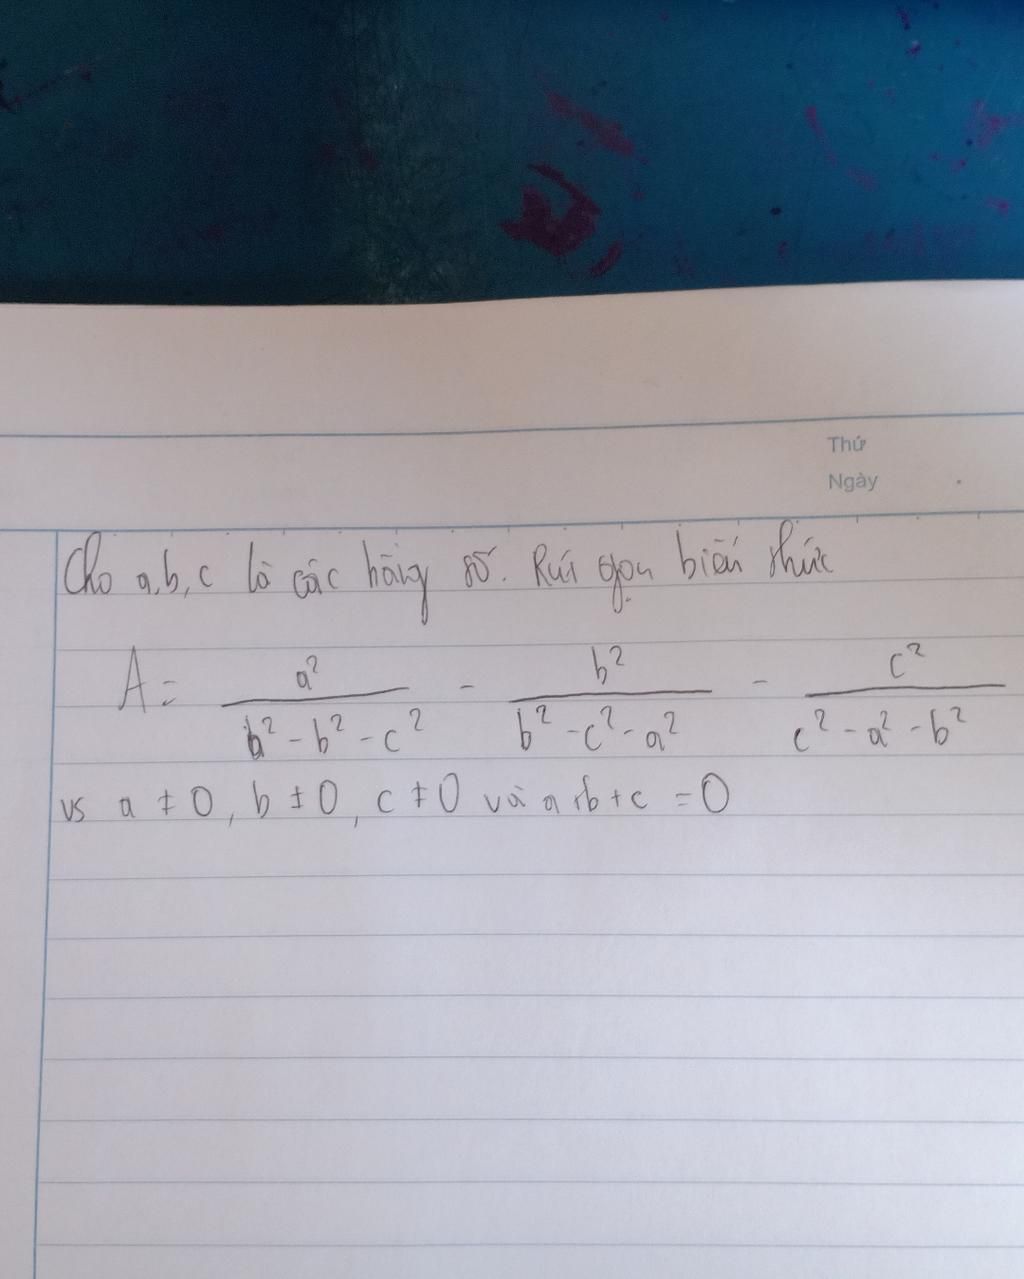 Thứ
Ngày
Cho a, b, c là các hằng số. Rút gọn biến thức
A = a²/(b² - b² - c²) - b²/(b² - c² - a²) - c²/(c² - a² - b²)
vs a ≠ 0, b ≠ 0, c ≠ 0 và a + b + c = 0